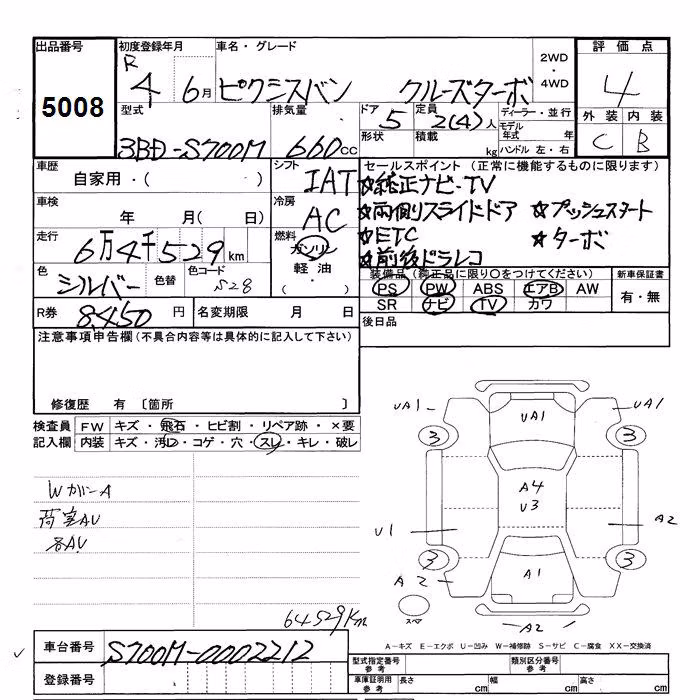 出品番号 初度登録年月 車名・グレード 2WD・4WD 評価点
5008 R4 6月 ピクシスバン クルーズターボ 4
型式 排気量 ドア 定員 ディーラー・並行 外装 内装
3BD-S700M 660cc 5 2(4)人 モデル年式 年 C B
形状 積載 kg ハンドル 左・右
車歴 シフト セールスポイント (正常に機能するものに限ります)
自家用・( ) IAT ☆純正ナビ・TV
車検 冷房 ☆両側スライドドア ☆プッシュスタート
年 月( 日) AC ☆ETC ☆ターボ
走行 燃料 ☆前後ドラレコ
6万4千529km ガソリン
色 色替 色コード 軽油 装備品 (純正品に限り○をつけてください) 新車保証書
シルバー S28 ・( ) PS PW ABS エアB AW 有・無
R券 名変期限 SR ナビ TV カワ
8,450円 月 日 後日品
注意事項申告欄(不具合内容等は具体的に記入して下さい)
修復歴 有 〔箇所 〕
検査員 FW キズ・飛石・ヒビ割・リペア跡・×要
記入欄 内装 キズ・汚れ・コゲ・穴・スレ・キレ・破レ
UA1 UA1 UA1
3 3
WカバーA A4
荷室AU U3
各AU U1 A2
3 3
A2 A1
スペア
64529Km A2
A-キズ E-エクボ U-凹み W-補修跡 S-サビ C-腐食 XX-交換済
車台番号 S700M-0002212
型式指定番号 参考 類別区分番号 参考
登録番号 車庫証明用 参考 長さ cm 幅 cm 高さ cm